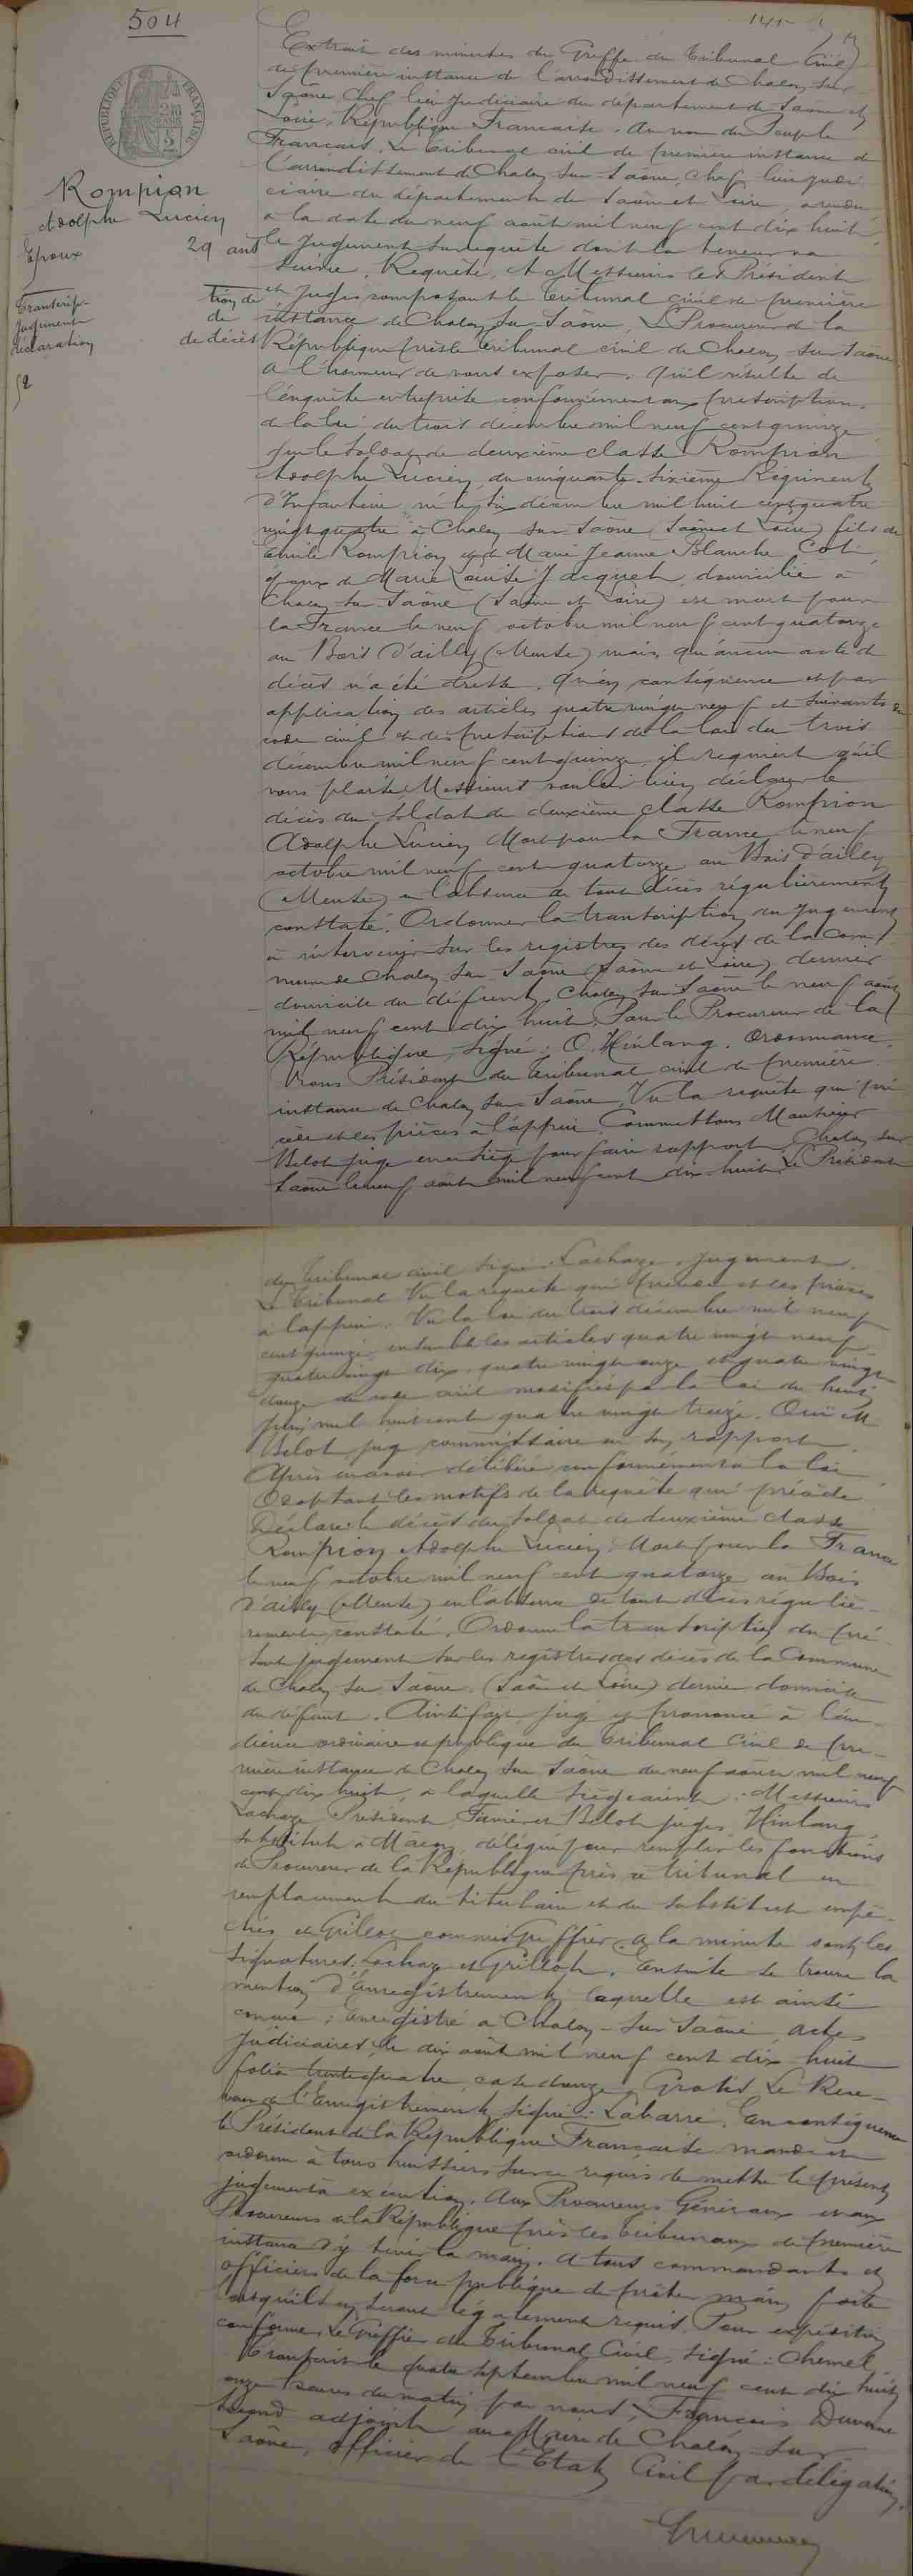 504
RÉPUBLIQUE FRANÇAISE
Rompion
Adolphe Lucien
Epoux 29 ans
Transcription de
jugement de
déclaration de décès
Extrait des minutes du Greffe du Tribunal Civil
de première instance de l'arrondissement de Chalon sur
Saône, Chef lieu Judiciaire du département de Saône et
Loire, République Française. Au nom du Peuple
Français. Le Tribunal civil de première instance de
l'arrondissement de Chalon sur Saône, Chef lieu judi
ciaire du département de Saône et Loire, a rendu
à la date du neuf août mil neuf cent dix huit
le Jugement sur requête dont la teneur va
suivre. Requête. A Messieurs les Président
et Juges composant le Tribunal civil de première
instance de Chalon sur Saône. Le Procureur de la
République près le Tribunal civil de Chalon sur Saône
a l'honneur de vous exposer. Qu'il résulte de
l'enquête entreprise conformément aux prescriptions
de la loi du trois décembre mil neuf cent quinze
que le soldat de deuxième classe Rompion
Adolphe Lucien, du cinquante sixième Régiment
d'Infanterie, né le six décembre mil huit cent quatre
vingt quatre à Chalon sur Saône (Saône et Loire) fils de
Emile Rompion et de Marie Jeanne Blanche Cot
époux de Marie Louise Jacquet, domicilié à
Chalon sur Saône (Saône et Loire) est mort pour
la France le neuf octobre mil neuf cent quatorze
au Bois d'ailly (Meuse) mais qu'aucun acte de
décès n'a été dressé. Qu'en conséquence et par
application des articles quatre vingt neuf et suivants du
code civil et des prescriptions de la loi du trois
décembre mil neuf cent quinze, il requiert qu'il
vous plaise Messieurs vouloir bien déclarer le
décès du soldat de deuxième classe Rompion
Adolphe Lucien Mort pour la France le neuf
octobre mil neuf cent quatorze au Bois d'ailly
(Meuse) en l'absence de tout décès régulièrement
constaté. Ordonner la transcription du Jugement
à intervenir sur les registres des décès de la Com
mune de Chalon sur Saône (Saône et Loire) dernier
domicile du défunt. Chalon sur Saône le neuf août
mil neuf cent dix huit. Pour le Procureur de la
République, signé : O. Hinlang. Ordonnance.
Nous Président du Tribunal civil de première
instance de Chalon sur Saône, Vu la requête qui pré
cède et les pièces à l'appui. Commettons Monsieur
Belot juge en ce siège pour faire rapport. Chalon sur
Saône le neuf août mil neuf cent dix huit. Le Président
du Tribunal civil signé Lachaze. Jugement.
Le Tribunal Vu la requête qui précède et les pièces
à l'appui. Vu la loi du trois décembre mil neuf
cent quinze, ensemble les articles quatre vingt neuf
quatre vingt dix, quatre vingt onze et quatre vingt
douze du code civil modifiés par la loi du huit
Juin mil huit cent quatre vingt treize. Ouï M
Belot juge commissaire en son rapport
Après en avoir délibéré conformément à la loi
Adoptant les motifs de la requête qui précède
Déclare le décès du soldat de deuxième classe
Rompion Adolphe Lucien Mort pour la France
le neuf octobre mil neuf cent quatorze au Bois
d'ailly (Meuse) en l'absence de tout décès réguliè
rement constaté. Ordonne la transcription du pré
sent jugement sur les registres des décès de la Commune
de Chalon sur Saône (Saône et Loire) dernier domicile
du défunt. Ainsi fait, jugé et prononcé à l'au
dience ordinaire et publique du Tribunal Civil de pre
mière instance de Chalon sur Saône du neuf août mil neuf
cent dix huit, à laquelle siégeaient : Messieurs
Lachaze Président, et Belot juges, Hinlang
substitut à Macon, délégué pour remplir les fonctions
de Procureur de la République près ce tribunal en
remplacement du titulaire et du substitut empê
chés et Grillot commis Greffier. A la minute sont les
signatures : Lachaze et Grillot. Ensuite se trouve la
mention d'Enregistrement, laquelle est ainsi
conçue : Enregistré à Chalon-sur Saône, actes
judiciaires, le dix août mil neuf cent dix huit
folio trente quatre, case douze. Gratis. Le Rece
veur de l'Enregistrement, signé : Labarre. En conséquence
le Président de la République Française mande et
ordonne à tous huissiers sur ce requis de mettre le présent
jugement à exécution. Aux Procureurs Généraux et aux
Procureurs de la République près les tribunaux de première
instance d'y tenir la main. A tous commandants et
officiers de la force publique de prêter main forte
lorsqu'ils en seront légalement requis. Pour expédition
conforme Le Greffier du Tribunal Civil, signé : Chemel
Transcrit le quatre Septembre mil neuf cent dix huit
onze heures du matin par nous, François Duverne
second adjoint au Maire de Chalon sur
Saône, officier de l'Etat Civil par délégation.